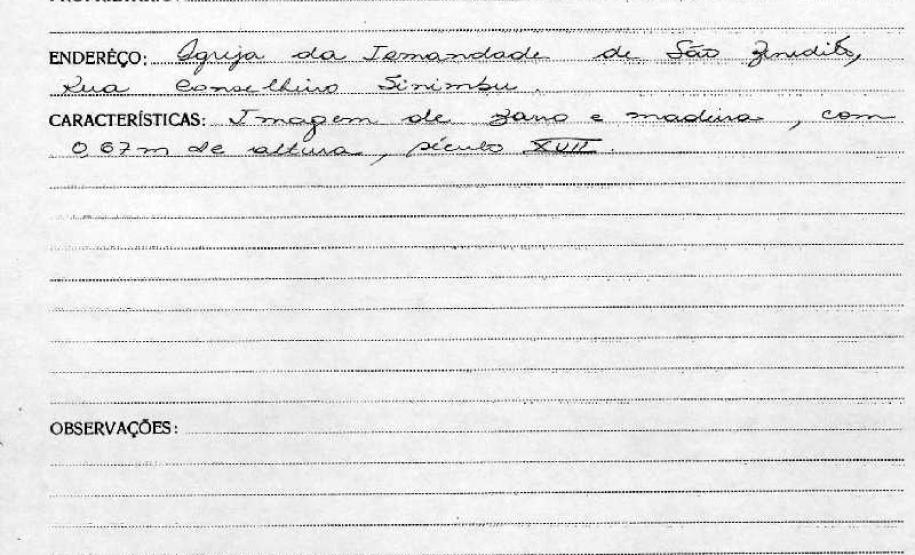 ENDERÊÇO: Igreja da Irmandade de São Benedito,
Rua Conselheiro Sinimbu.
CARACTERÍSTICAS: Imagem de barro e madeira, com
0,67m de altura, século XVII.
OBSERVAÇÕES: